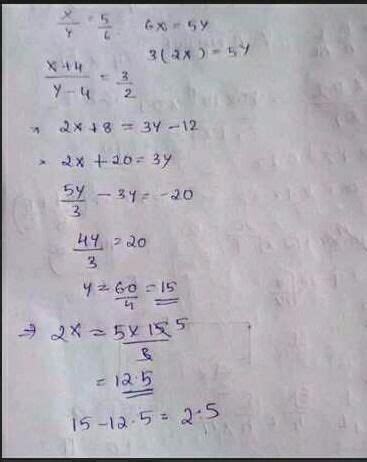 x/y = 5/6 6x = 5y
3(2x) = 5y
x+4/y-4 = 3/2
⇒ 2x + 8 = 3y - 12
⇒ 2x + 20 = 3y
5y/3 - 3y = -20
4y/3 = 20
y = 60/4 = 15
⇒ 2x = 5 x 15 5/3
= 12.5
15 - 12.5 = 2.5